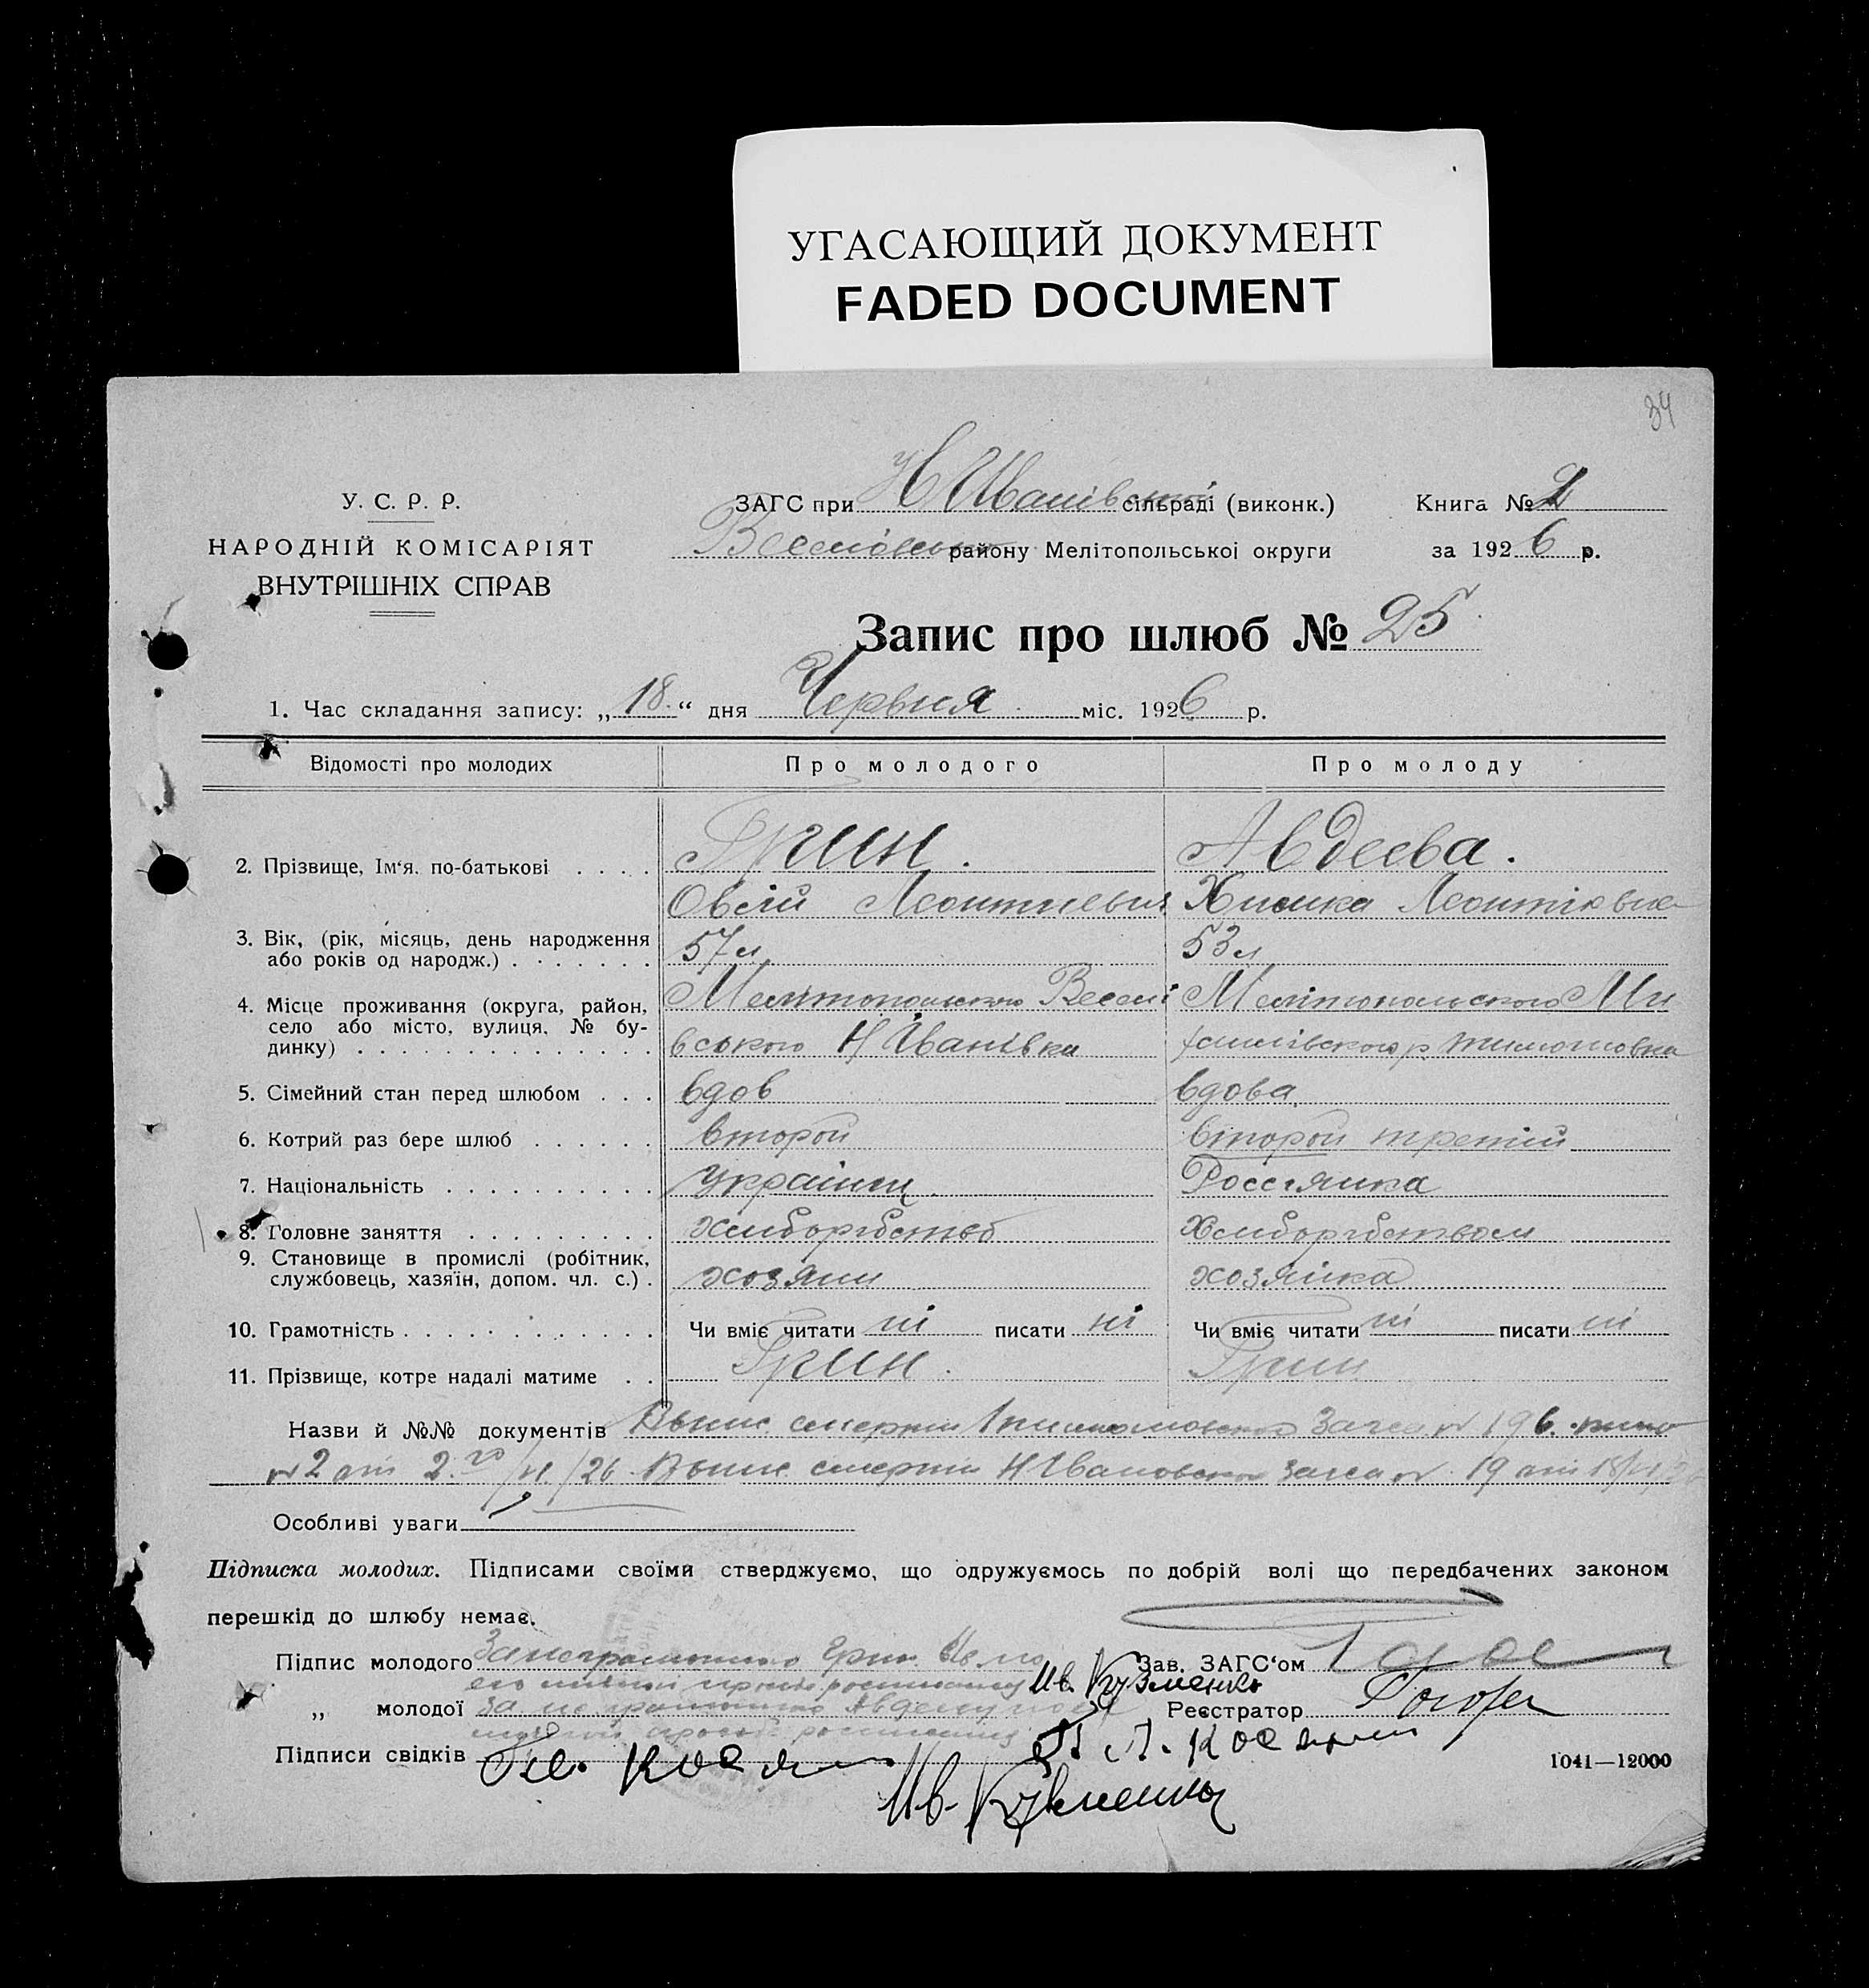 УГАСАЮЩИЙ ДОКУМЕНТ
FADED DOCUMENT
34
У. С. Р. Р.
НАРОДНІЙ КОМІСАРІЯТ
ВНУТРІШНІХ СПРАВ
ЗАГС при Н Иванівській сільраді (виконк.)
Книга № 2
Веселівського району Мелітопольської округи
за 1926 р.
Запис про шлюб № 25
1. Час складання запису: „18“ дня Червня міс. 1926 р.
Відомості про молодих
Про молодого
Про молоду
2. Прізвище, Ім‘я. по-батькові
Грин.
Авдеева.
Овсій Леонтиевич
Леонтіевна
3. Вік, (рік, місяць, день народження
або років од народж.)
57 л
53 л
4. Місце проживання (округа, район,
село або місто, вулиця, № бу-
динку)
Мелітопольського Веселі
вського Н Іванівка
Мелітопольського Ми
хайлівского р Тимошовка
5. Сімейний стан перед шлюбом
вдов
вдова
6. Котрий раз бере шлюб
второй
второй третій
7. Національність
Українец
Россіянка
8. Головне заняття
хлиборобство
Хлиборобством
9. Становище в промислі (робітник,
службовець, хазяїн, допом. чл. с.)
хозяин
хозяйка
10. Грамотність
Чи вміє читати ні писати ні
Чи вміє читати ні писати ні
11. Прізвище, котре надалі матиме
Грин.
Грин
Назви й №№ документів смерти Тимошовского Загса № 196.
№ 2 от 2.го /26. Выпис. смерти Н Ивановского загса № 19 от
Особливі уваги
Підписка молодих. Підписами своїми стверджуємо, що одружуємось по добрій волі що передбачених законом
перешкід до шлюбу немає.
Підпис молодого За неграмотного Грин
его личной просьбе росписался Ив. Кузменко
Зав. ЗАГС‘ом
„ молодої за не грамотную Авдееву по ее
личной просьбе росписался
Реєстратор
Підписи свідків
Ив. Кузменко
1041—12000